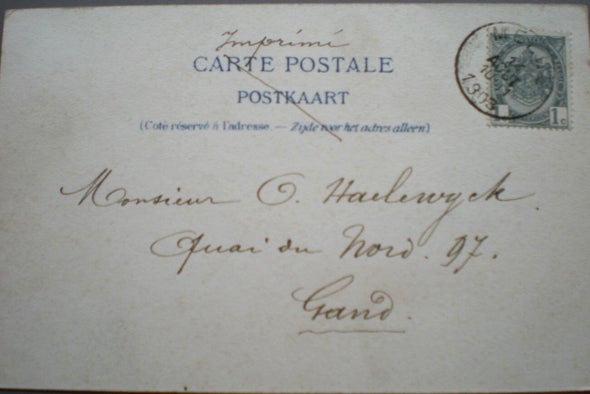 Imprimé
CARTE POSTALE
POSTKAART
(Coté réservé à l'adresse. — Zijde voor het adres alleen)
Monsieur O. Haelewyck.
Quai du Nord. 97.
Gand.
1903
1c